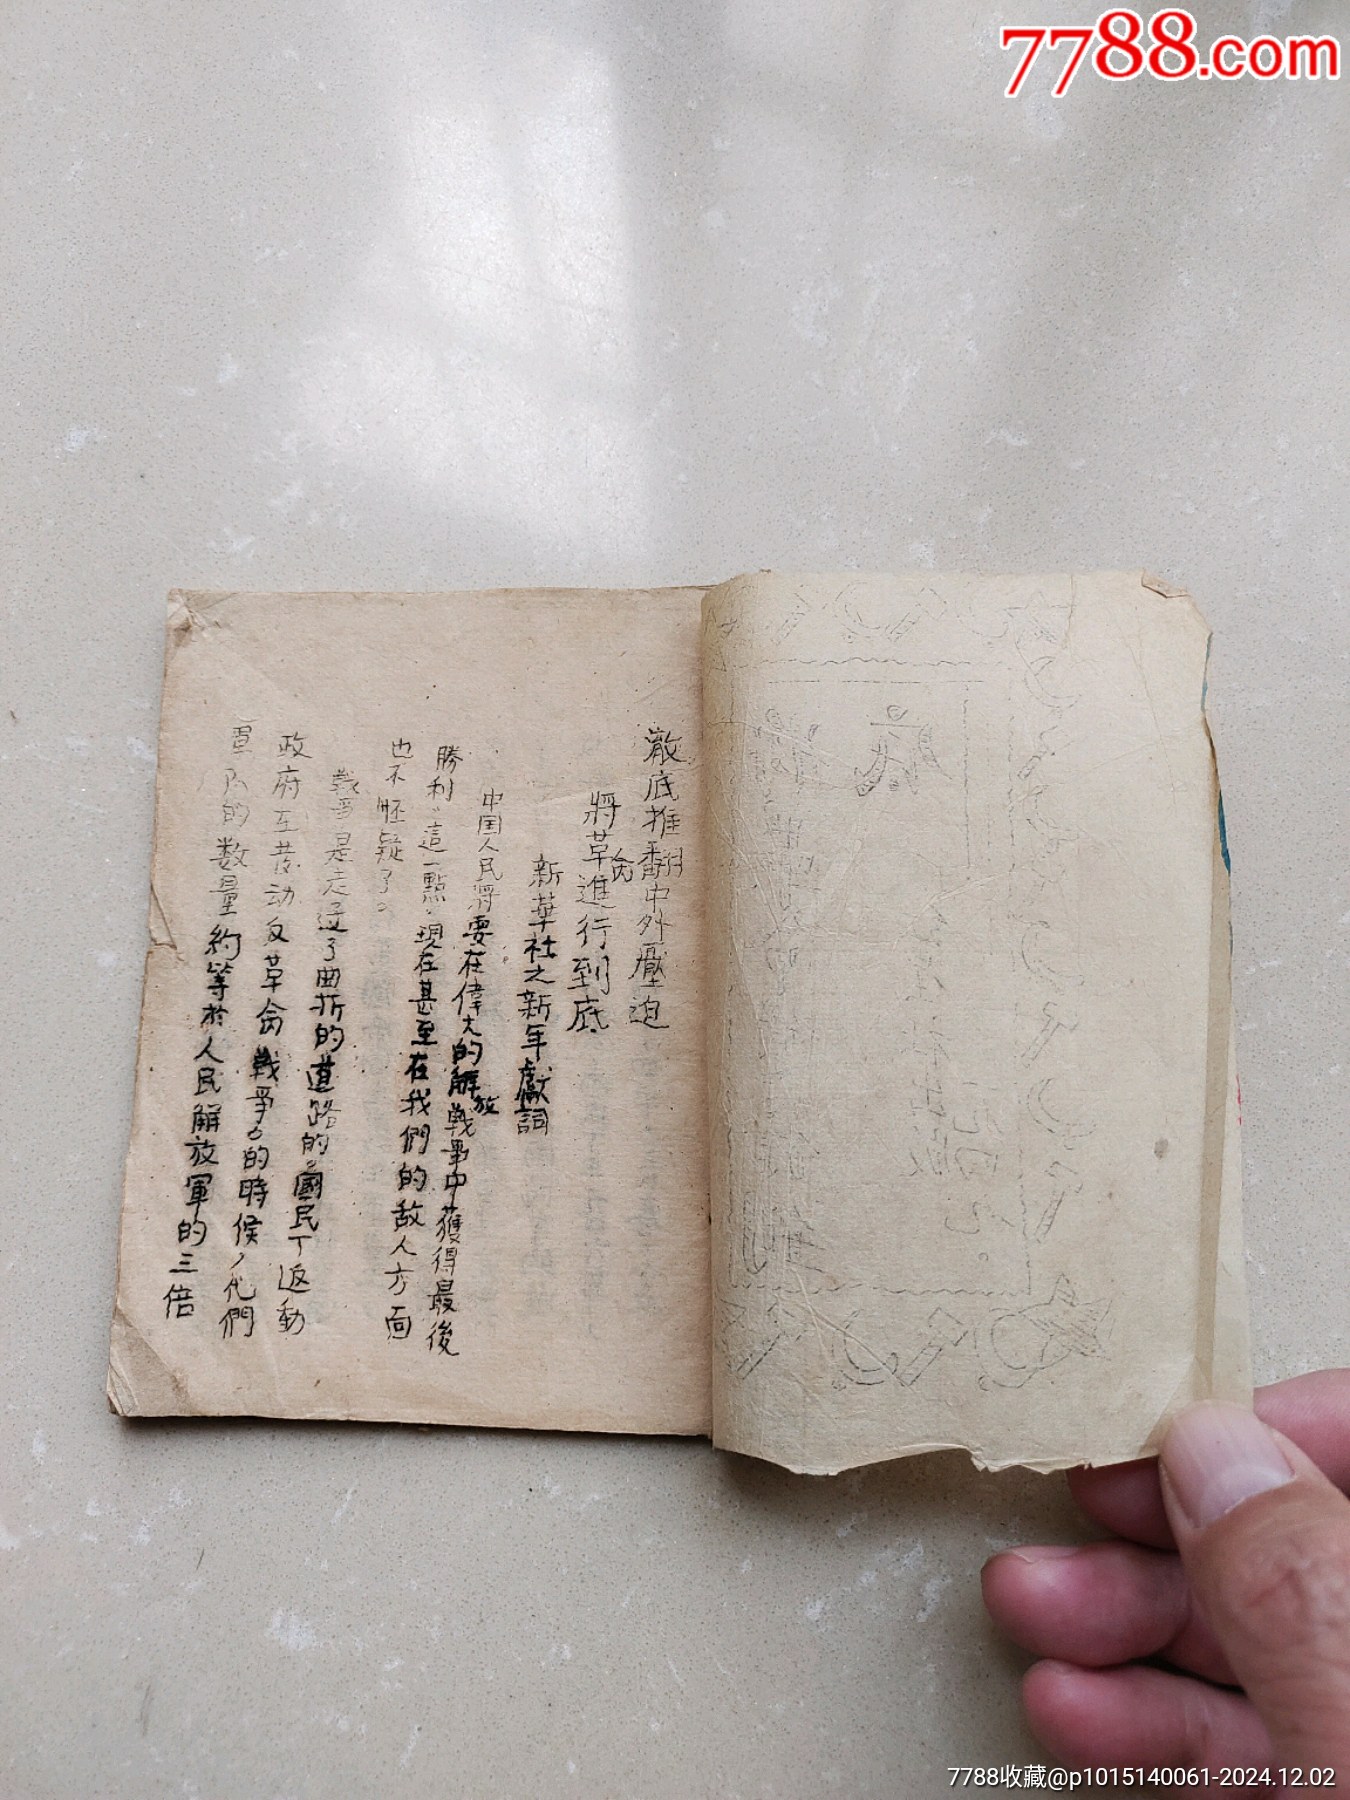 7788.com
徹底推翻中外壓迫
將革命進行到底
新華社之新年獻詞
中国人民將要在偉大的解放戰爭中獲得最後
勝利"這一點"現在甚至在我們的敌人方面
也不怀疑了。
戰爭是走过了曲折的道路的"國民丁返動
政府在发动反革命戰爭"的時候,他們
軍队的数量約等於人民解放軍的三倍
底
7788收藏@p1015140061-2024.12.02